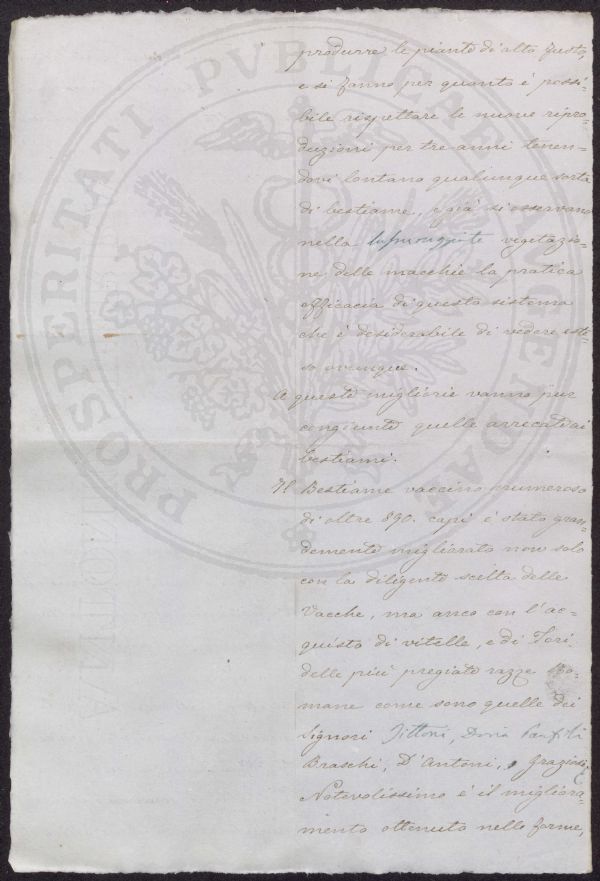 produrre le piante di alto fusto,
e si fanno per quanto è possi-
bile rispettare le nuove ripro-
duzioni per tre anni tenen-
dovi lontano qualunque sorta
di bestiame, e già si osservano
nella vegetazio-
ne delle macchie la pratica
efficacia di questo sistema
che è desiderabile di vedere este-
so ovunque.
A queste migliorie vanno pur
congiunte quelle arrecate ai
bestiami.
Il Bestiame vaccino numeroso
di oltre 890. capi è stato gran-
demente migliorato non solo
con la diligente scelta delle
Vacche, ma anco con l'ac-
quisto di vitelle, e di Tori
delle più pregiate razze Ro-
mane come sono quelle dei
Signori Tittoni, Doria Panfili
Braschi, D'Antoni, Grazioli,
Notevolissimo è il migliora-
mento ottenuto nelle forme,
PROSPERITATI PVBLICAE AVGENDAE